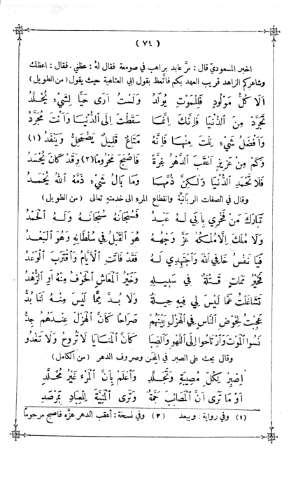 (٧٤)
اخبر المسعودي قال : مرّ عابد براهب في صومعة فقال لهُ : عظني . فقال : اعظك
وشاعركم الزاهد قريب العهد بكم فاتعظ بقول ابي العتاهية حيث يقول (من الطويل)
اَلَا كُلُّ مَوْلُودٍ فَلِلْمَوْتِ يُولَدُ وَلَسْتُ أَرَى حَيًّا لِشَيْءٍ يُخَلَّدُ
تَجَرَّدْ مِنَ الدُّنْيَا فَإِنَّكَ إِنَّمَا سَقَطْتَ إِلَى الدُّنْيَا وَأَنْتَ مُجَرَّدُ
وَأَفْضَلُ شَيْءٍ نِلْتَ مِنْهَا فَإِنَّهُ مَتَاعٌ قَلِيلٌ يَضْمَحِلُّ وَيَنْفَدُ (١)
وَكَمْ مِنْ عَزِيزٍ أَعْقَبَ الدَّهْرُ عِزَّهُ فَأَصْبَحَ مَحْرُومًا (٢) وَقَدْ كَانَ يُحْمَدُ
فَلَا تَحْمَدِ الدُّنْيَا وَلَكِنْ ذُمَّهَا وَمَا بَالُ شَيْءٍ ذَمَّهُ اللهُ يُحْمَدُ
وقال في الصفات الربانيَّة وانقطاع المرء الى خدمته تعالى (من الطويل)
تَبَارَكَ مَنْ فَخْرِي بِأَنِّي لَهُ عَبْدُ فَسُبْحَانَهُ سُبْحَانَهُ وَلَهُ الْحَمْدُ
وَلَا مُلْكَ إِلَّا مُلْكُهُ عَزَّ وَجْهُهُ هُوَ الْقَبْلُ فِي سُلْطَانِهِ وَهُوَ الْبَعْدُ
فَيَا نَفْسُ خَافِي اللهَ وَاجْتَهِدِي لَهُ فَقَدْ فَاتَتِ الْأَيَّامُ وَاقْتَرَبَ الْوَعْدُ
فَخَيْرُ مَمَاتٍ قَتْلَةٌ فِي سَبِيلِهِ وَخَيْرُ الْمَعَاشِ الْخَوْفُ مِنْهُ أَوِ الزُّهْدُ
تَشَاغَلْتُ عَمَّا لَيْسَ لِي مِنْهُ حِيلَةٌ وَلَا بُدَّ مِمَّا لَيْسَ مِنْهُ لَنَا بُدُّ
عَجِبْتُ لِخَوْضِ النَّاسِ فِي الْهَزْلِ بَيْنَهُمْ صُرَاحًا كَأَنَّ الْهَزْلَ عِنْدَهُمُ جِدُّ
نَسُوا الْمَوْتَ وَارْتَاحُوا إِلَى اللَّهْوِ وَالصِّبَا كَأَنَّ الْمَنَايَا لَا تَرُوحُ وَلَا تَغْدُو
وقال يحث على الصبر في المحن وصروف الدهر (من الكامل)
اِصْبِرْ لِكُلِّ مُصِيبَةٍ وَتَجَلَّدِ وَاعْلَمْ بِأَنَّ الْمَرْءَ غَيْرُ مُخَلَّدِ
أَوَ مَا تَرَى أَنَّ الْمَصَائِبَ جَمَّةٌ وَتَرَى الْمَنِيَّةَ لِلْعِبَادِ بِمَرْصَدِ
(١) وفي رواية : ويبعد (٢) وفي نسخة : اعقب الدهر عزَّه فاصبح مرحومًا